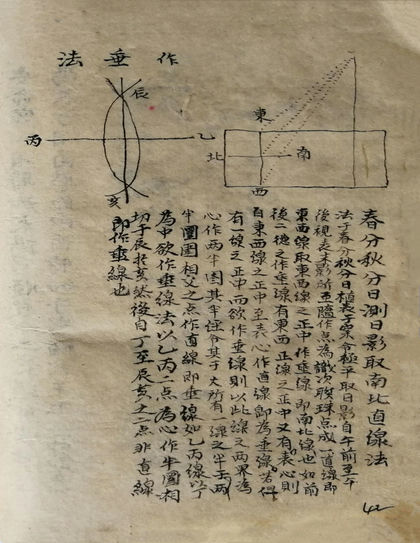 作垂法
辰
丙
乙
亥
東
北
南
西
春分秋分日測日影取南北直線法
法于春分秋分日植表于案令極平取日影自午前至午
後視表末影所至隨作点為識次聯珠点成一直線即
東西線取東西線之正中作垂線即南北線也如前
後二德之作垂線有東西正線之正中又有表心則
自東西線之正中至表心作直線即為垂線若但
有一線之正中而欲作垂線則以此線之兩界為
心作兩半圜其半徑令其于大所有一線之半兩
半圜相交之点作直線即垂線如乙丙線以丁
為中欲作垂線法以乙丙二点為心作半圜相
切于辰于亥然後自丁至辰亥之二点非直線
即作垂線也
42